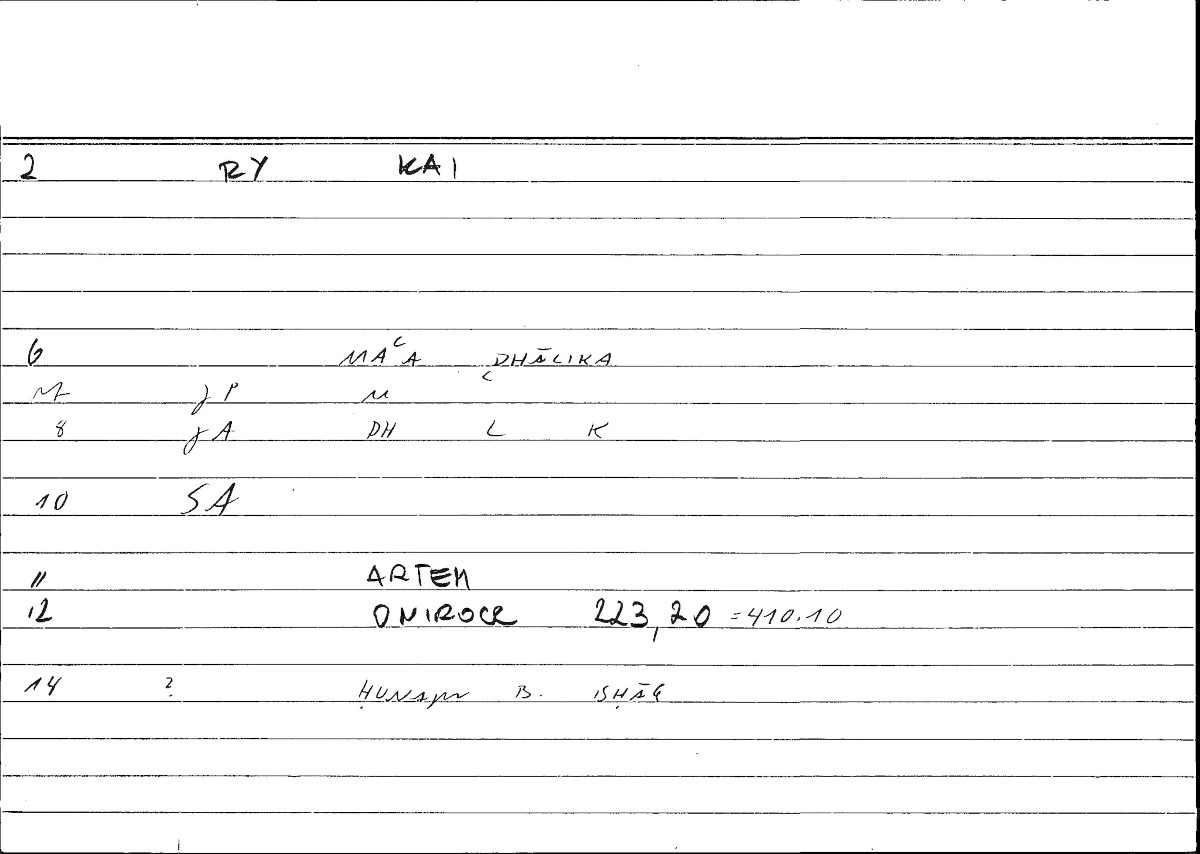 2 RY KAI
6 MAʿA ḎHĀLIKA
8 gA DH L K
10 SA
11 ARTEM
12 ONIROCR 223,20 =410.10
14 ? ḤUNAyN B. ISḤĀQ